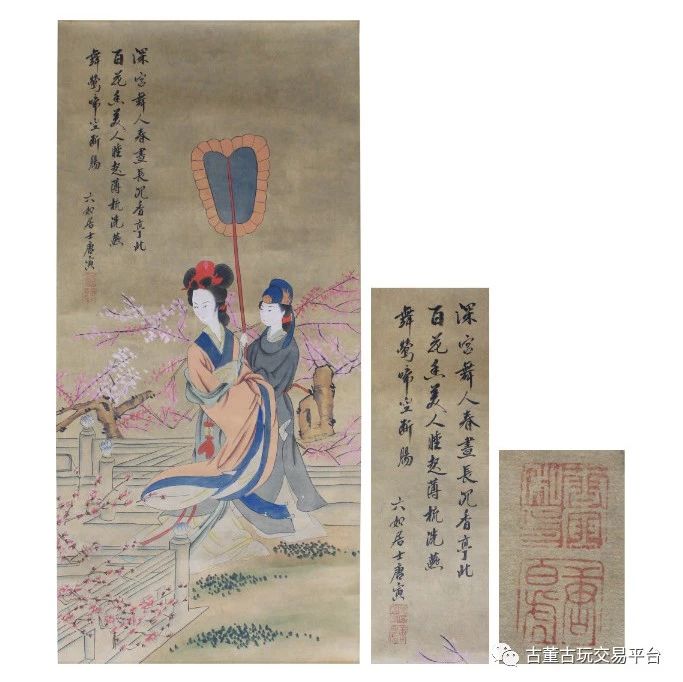 深宮無人春晝長沉香亭北
百花香美人睡起薄梳洗燕
舞鶯啼空斷腸
六如居士唐寅
深宮無人春晝長沉香亭北
百花香美人睡起薄梳洗燕
舞鶯啼空斷腸
六如居士唐寅
古董古玩交易平台